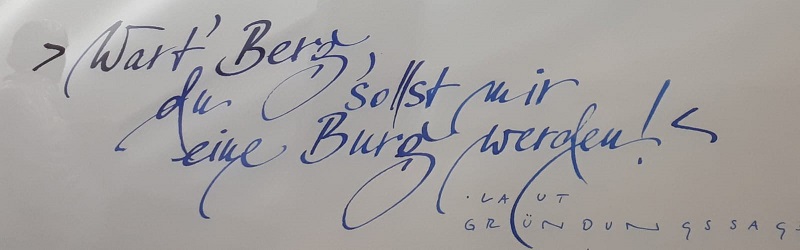 >Wart' Berg,
du sollst mir
eine Burg werden!<
·LAUT
GRÜNDUNGSSAG